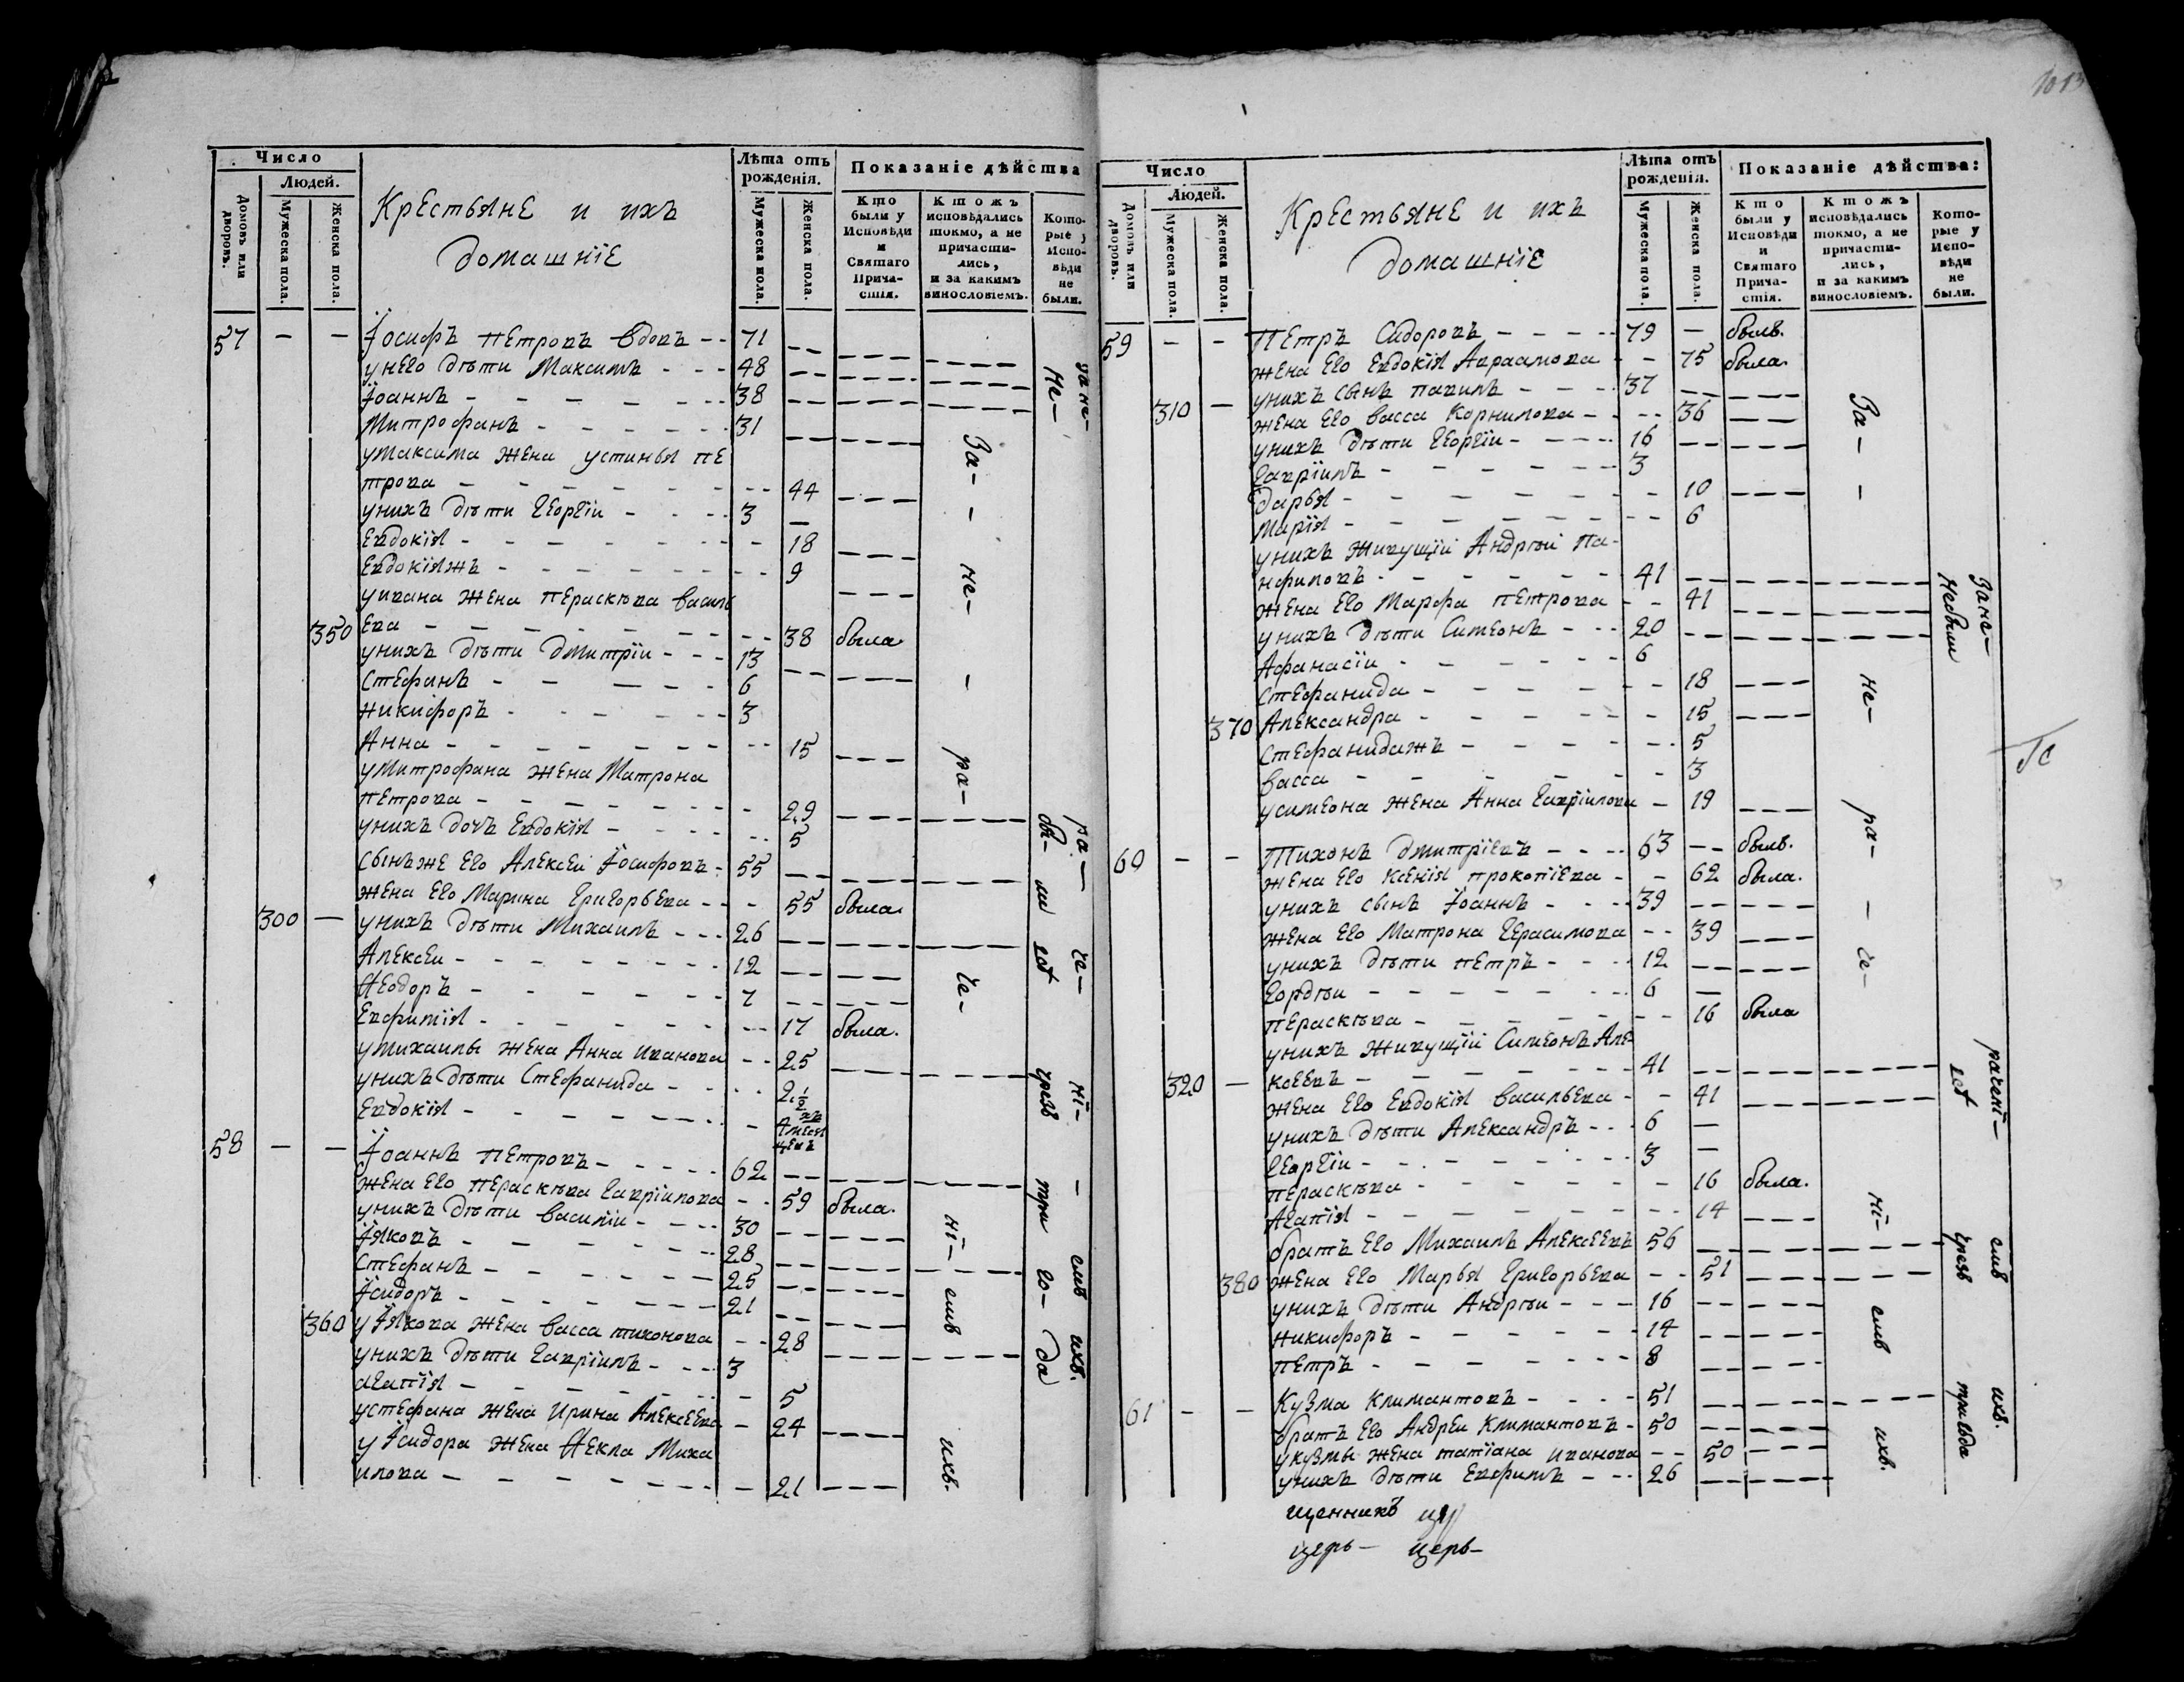 1013
Число
Людей.
Домовъ или дворовъ.
Мужеска пола.
Женска пола.
Крестьяне и ихъ
домашніе
Лѣта отъ рожденія.
Мужеска пола.
Женска пола.
Показаніе дѣйства
Кто были у Исповѣди и Святаго Причастія.
Ктожъ исповѣдались токмо, а не причастились, и за какимъ винословіемъ.
Которые у Исповѣди не были.
57 — — Іосифъ Петровъ вдовъ 71
у него дѣти Максимъ 48
Іоаннъ 38
Митрофанъ 31
у Максима жена Устинья Пе
трова 44
у нихъ дѣти Георгіи 3
Евдокія 18
Евдокіяжъ 9
у Ивана жена Пераскѣва Василь
350 ева 38 была
у нихъ дѣти Дмитріи 13
Стефанъ 6
Никифоръ 3
Анна 15
у Митрофана жена Матрона
Петрова 29
у нихъ дочь Евдокія 5
сынъ же его Алексеи Іосифовъ 55
жена его Марина Григорьева 55 была
300 — у нихъ дѣти Михаилъ 26
Алексеи 12
Ѳеодоръ 7
Евфимія 17 была.
у Михаилы жена Анна Иванова 25
у нихъ дѣти Стефанида 2 1/2
Евдокія 4хъ месяцевъ
58 — — Іоаннъ Петровъ 62
жена его Пераскѣва Гавріилова 59 была.
у нихъ дѣти Василіи 30
Іяковъ 28
Стефанъ 25
Ісидоръ 21
360 у Іякова жена Васса Тихонова 28
у нихъ дѣти Гавріилъ 3
Агапія 5
у Стефана жена Ирина Алексеева 24
у Ісидора жена Ѳекла Миха
илова 21
За-не-ра-че-ні-емъ ихъ.
За не-ра-че-ні-емъ ихъ.
Не-бы-ли еѣ чрезъ три го-да
Число
Людей.
Домовъ или дворовъ.
Мужеска пола.
Женска пола.
Крестьяне и ихъ
домашніе
Лѣта отъ рожденія.
Мужеска пола.
Женска пола.
Показаніе дѣйства:
Кто были у Исповѣди и Святаго Причастія.
Ктожъ исповѣдались токмо, а не причастились, и за какимъ винословіемъ.
Которые у Исповѣди не были.
59 — — Петръ Сидоровъ 79 — былъ.
жена его Евдокія Авраамова 75 была.
у нихъ сынъ Павилъ 37
310 — жена его Васса Корнилова 36
у нихъ дѣти Георгіи 16
Гавріилъ 3
Дарья 10
Марія 6
у нихъ живущіи Андрѣи Па-
нфиловъ 41
жена его Марфа Петрова 41
у нихъ дѣти Симеонъ 20
Афанасіи 6
Стефанида 18
370 Александра 15
Стефанидажъ 5
Васса 3
у Симеона жена Анна Гавріилова 19
60 — — Тихонъ Дмитріевъ 63 былъ.
жена его Ксенія Прокопіева 62 была.
у нихъ сынъ Іоаннъ 39
жена его Матрона Герасимова 39
у нихъ дѣти Петръ 12
Гордѣи 6
Пераскѣва 16 была
у нихъ живущіи Симеонъ Але
320 — ксеевъ 41
жена его Евдокія Васильева 41
у нихъ дѣти Александръ 6
Георгіи 3
Пераскѣва 16 была.
Агапія 14
братъ его Михаилъ Алексеевъ 56
380 жена его Марья Григорьева 51
у нихъ дѣти Андрѣи 16
Никифоръ 14
Петръ 8
61 — — Кузма Климантовъ 51
братъ его Андреи Климантовъ 50
у Кузмы жена Татіана Иванова 50
у нихъ дѣти Евфимъ 26
За-не-ра-че-ні-емъ ихъ.
За не-рачені-емъ ихъ.
Не были еѣ чрезъ три года
щенникъ
церь- церь-